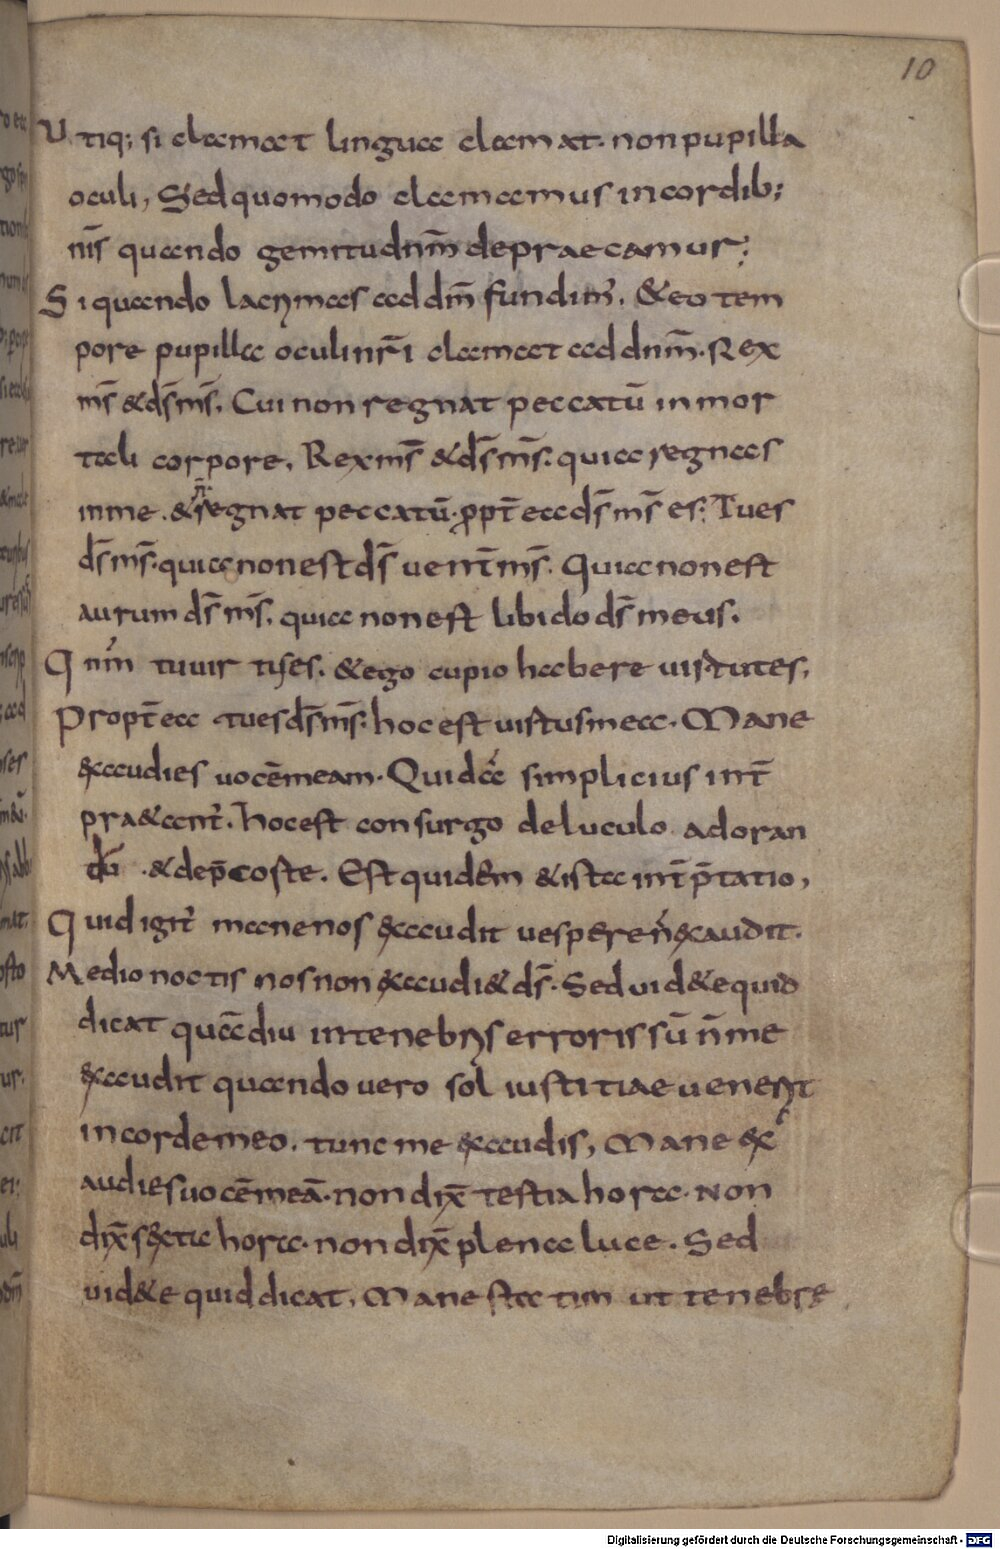 10
Utiq; si clamat lingua clamat. non pupilla
oculi, Sed quomodo clamamus in cordib;
nr̄is quando gemitu dnm̄ depraecamur;
Si quando lacrymas ad dm̄ fundim', & eo tem
pore pupilla oculi nr̄i clamat ad dnm̄. Rex
ms̄ & ds̄ ms̄. Cui non regnat peccatū in mor
tali corpore, Rex ms̄ & ds̄ ms̄. quia regnas
in me. & n̄ regnat peccatū. ppt̄ea ds̄ ms̄ es; Tu es
ds̄ ms̄. quia non est ds̄ uent̄ ms̄. Quia non est
aurum ds̄ ms̄. quia non est libido ds̄ meus.
Qnm̄ tu uirtus es. & ego cupio habere uirtutes,
Propt̄ea tu es ds̄ ms̄. hoc est uirtus mea. Mane
&audies uocē meam. Quid ē simplicius int̄
pra&ant'. hoc est consurgo deluculo adoran
dū & dep̄co te. Est quidem & ista int̄p̄tatio,
Quid igit' mane nos exaudit uespere n̄ exaudit.
Medio noctis nos non exaudi& ds̄. Sed uid&e quid
dicat quādiu in tenebris erroris sū n̄ me
exaudit quando uero sol iustitiae uenerit
in corde meo. tunc me exaudis, Mane ex
audies uocē meā. non dix̄ tertia hora. Non
dix̄ sexta hora. non dix̄ plena luce. Sed
uid&e quid dicat, Mane statim ut tenebre
Digitalisierung gefördert durch die Deutsche Forschungsgemeinschaft - DFG